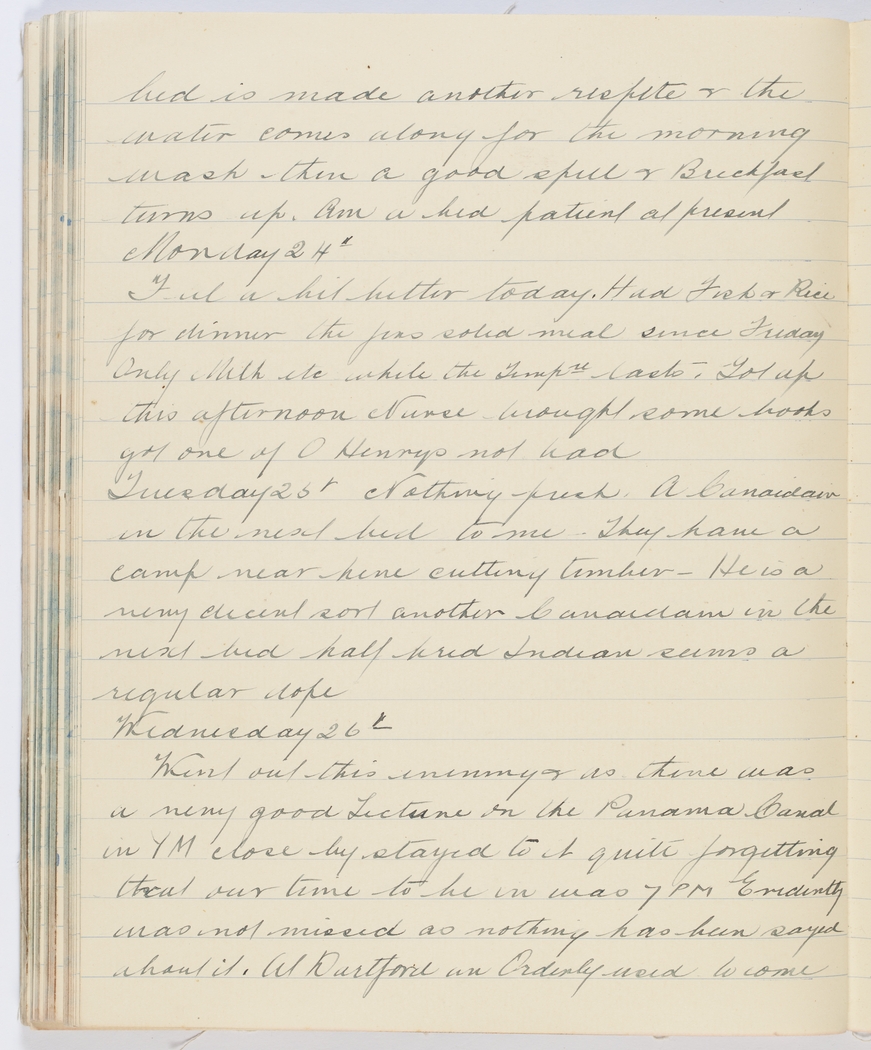 bed is made another respite & the
water comes along for the morning
wash then a good spell & Breckfast
turns up. Am a bed patient at present
Monday 24"
Feel a bit better today. Had Fish & Rice
for dinner the firs soled meal since Friday
Only Milk etc while the Tempre lasts. Got up
this afternoon Nurse brought some books
got one of O Henrys not bad
Tuesday 25t Nothing fresh. A Canaidain
in the next bed to me - They have a
camp near here cutting timber - He is a
very decent sort another Canaidain in the
next bed half bred Indian seems a
regular dope
Wednesday 26t
Went out this evening & as there was
a very good Lecture on the Panama Canal
in YM close by stayed to it quite forgetting
that our time to be in was 7 PM Evidently
was not missed as nothing has been sayed
about it. At Dartford an Orderly used to come